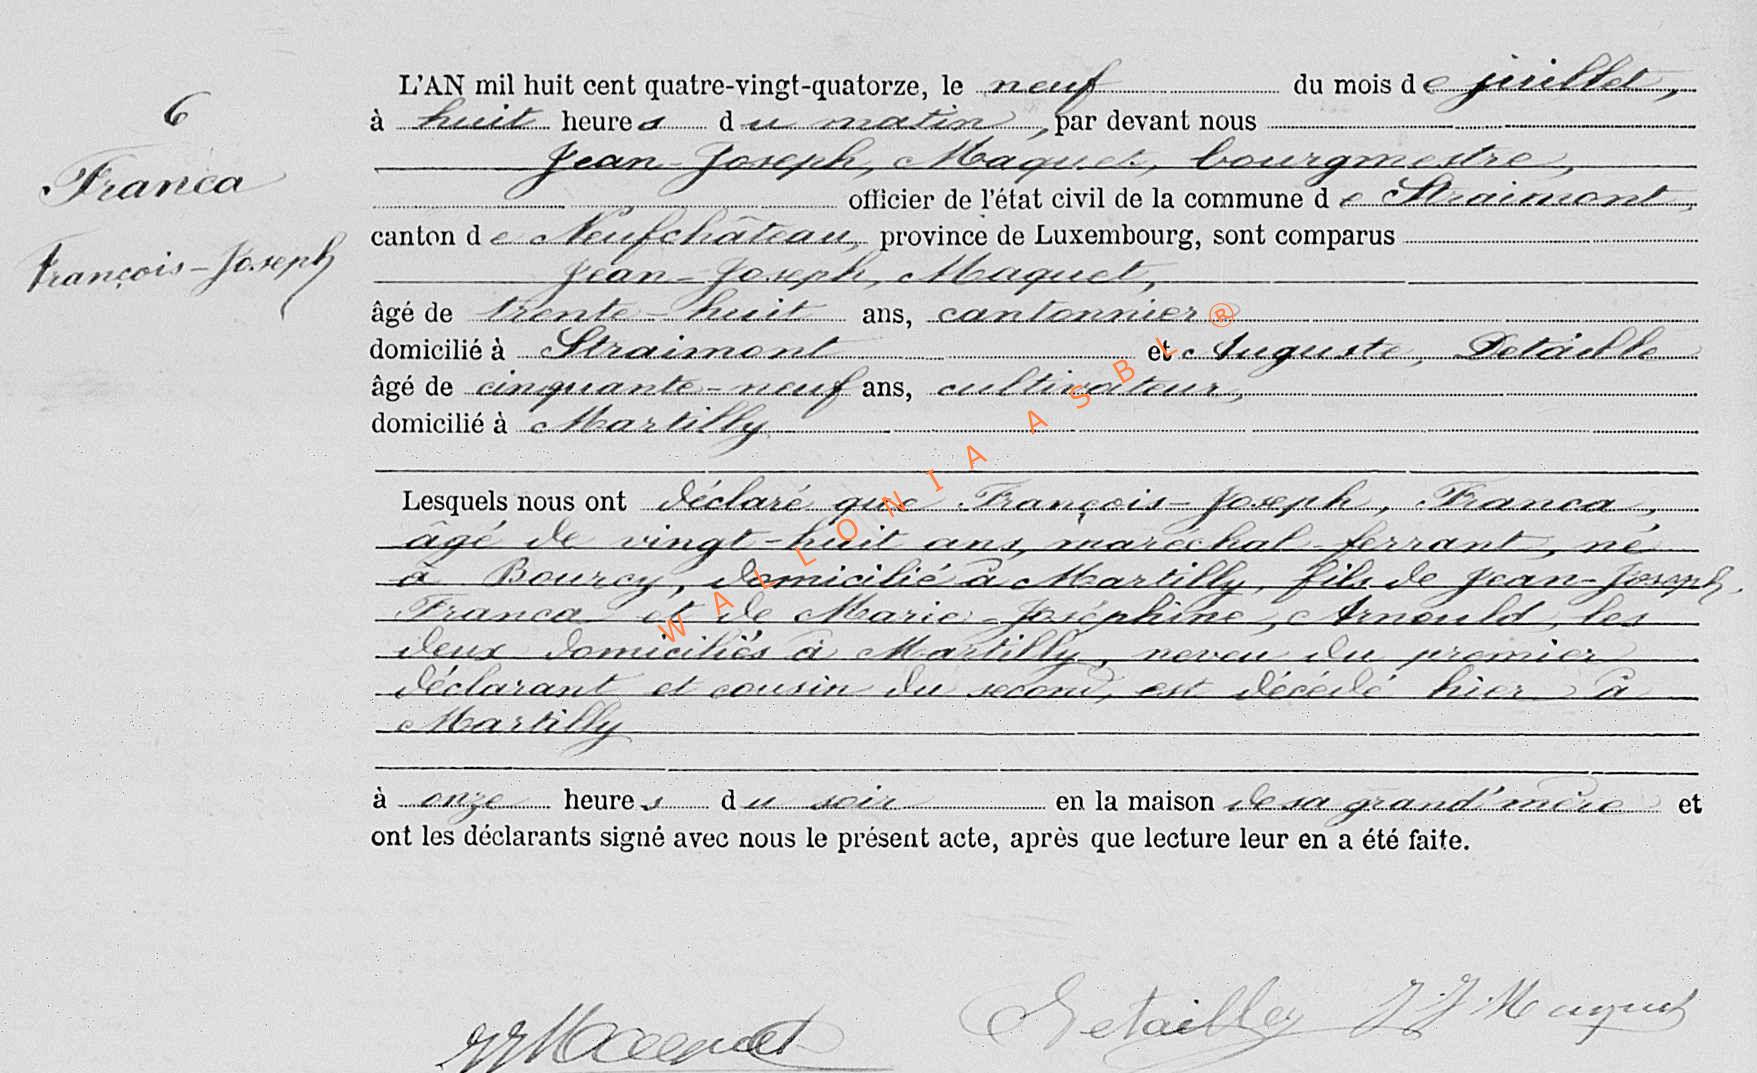 6
Franca
François-Joseph
L'AN mil huit cent quatre-vingt-quatorze, le neuf du mois de juillet,
à huit heures du matin, par devant nous
Jean-Joseph, Maquet, bourgmestre,
officier de l'état civil de la commune de Straimont,
canton de Neufchâteau, province de Luxembourg, sont comparus
Jean-Joseph, Maquet,
âgé de trente-huit ans, cantonnier
domicilié à Straimont et Auguste, Detaille
âgé de cinquante-neuf ans, cultivateur,
domicilié à Martilly
Lesquels nous ont déclaré que François-Joseph, Franca,
âgé de vingt-huit ans, maréchal-ferrant, né
à Bourcy, domicilié à Martilly, fils de Jean-Joseph,
Franca et de Marie-Joséphine, Arnould, les
deux domiciliés à Martilly, neveu du premier
déclarant et cousin du second, est décédé hier à
Martilly
à onze heures du soir en la maison de sa grand'mère et
ont les déclarants signé avec nous le présent acte, après que lecture leur en a été faite.
WALLONIA ASBL ®
JJMaquet Detailley JJ Maquet